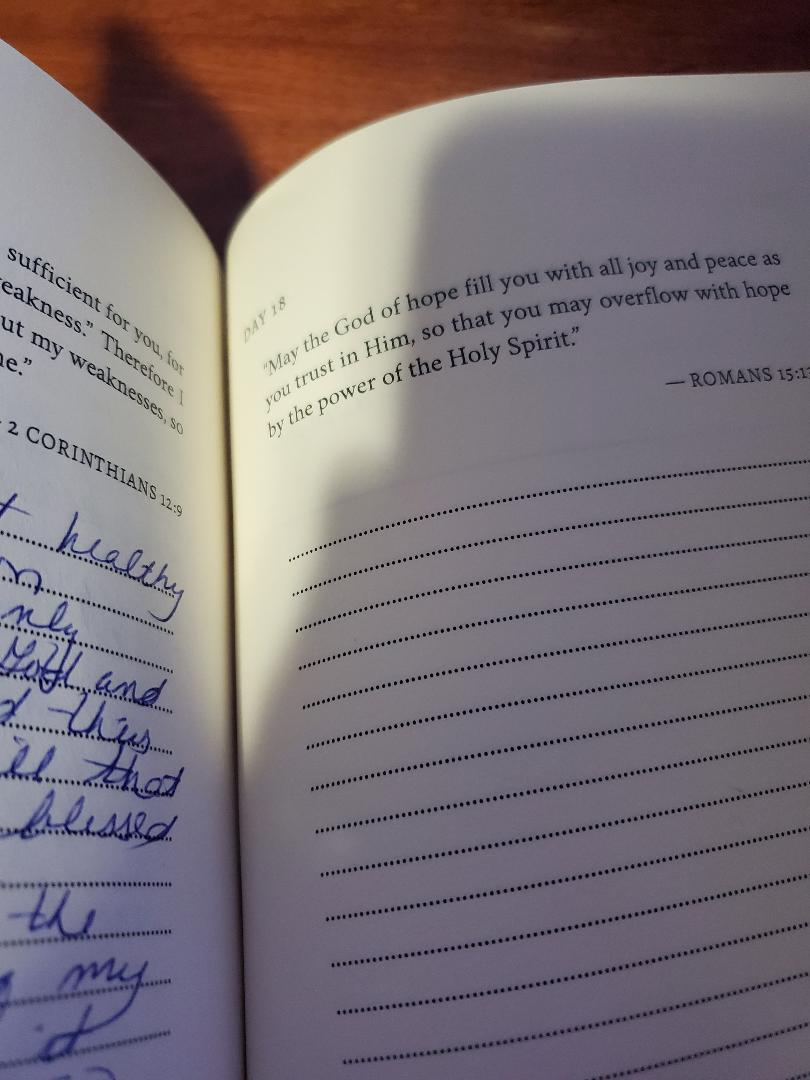 sufficient for you, for
eakness." Therefore I
ut my weaknesses, so
ne."
2 CORINTHIANS 12:9
healthy
nly
God and
d this
ill that
blessed
the
my
it
DAY 18
"May the God of hope fill you with all joy and peace as
you trust in Him, so that you may overflow with hope
by the power of the Holy Spirit."
— ROMANS 15:13